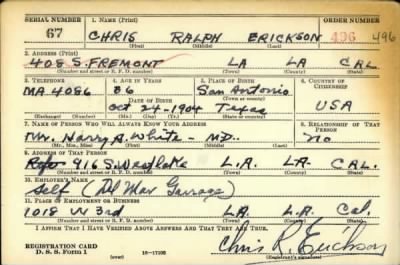 SERIAL NUMBER 1. NAME (Print) ORDER NUMBER
67 CHRIS RALPH ERICKSON 496 496
(First) (Middle) (Last)
2. ADDRESS (Print)
408 S. FREMONT LA LA CAL.
(Number and street or R. F. D. number) (Town) (County) (State)
3. TELEPHONE 4. AGE IN YEARS 5. PLACE OF BIRTH 6. COUNTRY OF CITIZENSHIP
MA 4086 36 San Antonio
DATE OF BIRTH
Oct 24-1904 Texas USA
(Exchange) (Number) (Mo.) (Day) (Yr.) (State or country)
7. NAME OF PERSON WHO WILL ALWAYS KNOW YOUR ADDRESS 8. RELATIONSHIP OF THAT PERSON
Mr. Harry A. White - M.D. No
(Mr., Mrs., Miss) (First) (Middle) (Last)
9. ADDRESS OF THAT PERSON
916 S. Westlake L.A. LA. CAL.
(Number and street or R. F. D. number) (Town) (County) (State)
10. EMPLOYER'S NAME
Self (Del Mar Garage)
11. PLACE OF EMPLOYMENT OR BUSINESS
1018 W 3rd LA. L.A. Cal.
(Number and street or R. F. D. number) (Town) (County) (State)
I AFFIRM THAT I HAVE VERIFIED ABOVE ANSWERS AND THAT THEY ARE TRUE.
REGISTRATION CARD
D. S. S. Form 1 16-17105 Chris R. Erickson
(Registrant's signature)